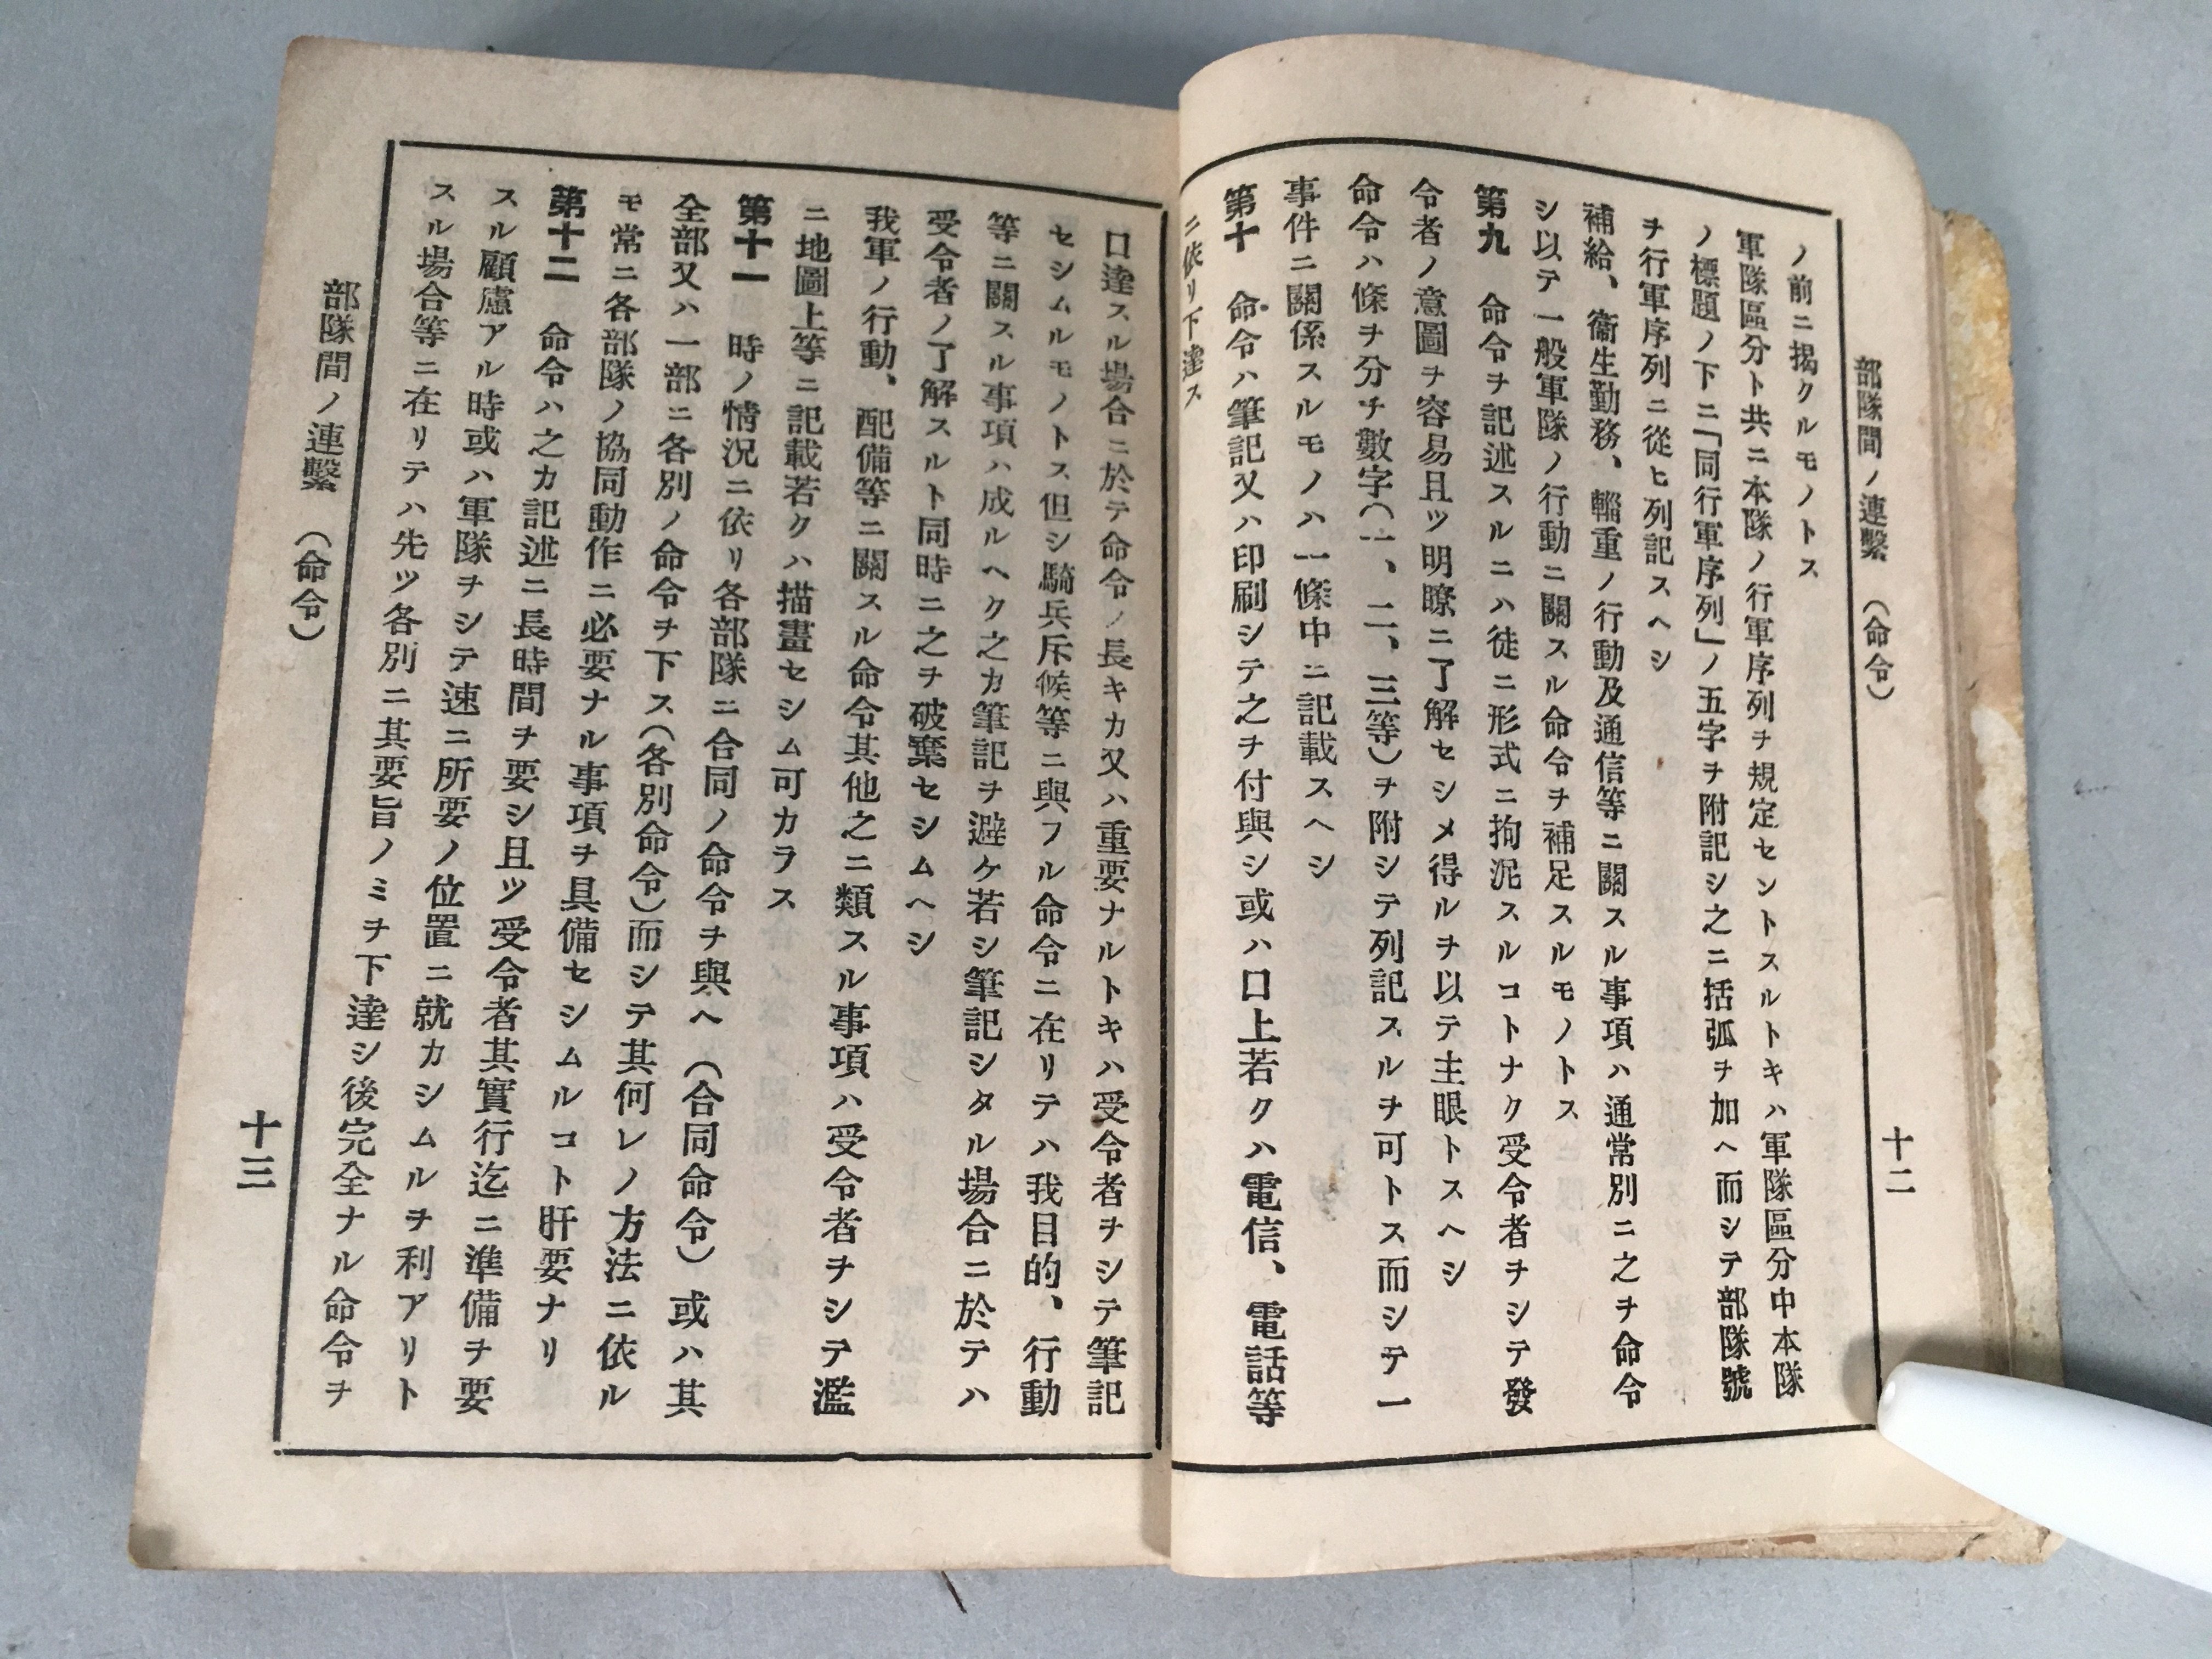 部隊間ノ連繫　（命令）
十二
ノ前ニ揭クルモノトス
軍隊區分ト共ニ本隊ノ行軍序列ヲ規定セントスルトキハ軍隊區分中本隊
ノ標題ノ下ニ「同行軍序列」ノ五字ヲ附記シ之ニ括弧ヲ加ヘ而シテ部隊號
ヲ行軍序列ニ從ヒ列記スヘシ
補給、衞生勤務、輜重ノ行動及通信等ニ關スル事項ハ通常別ニ之ヲ命令
シ以テ一般軍隊ノ行動ニ關スル命令ヲ補足スルモノトス
第九　命令ヲ記述スルニハ徒ニ形式ニ拘泥スルコトナク受令者ヲシテ發
令者ノ意圖ヲ容易且ツ明瞭ニ了解セシメ得ルヲ以テ主眼トスヘシ
命令ハ條ヲ分チ數字（一、二、三等）ヲ附シテ列記スルヲ可トス而シテ一
事件ニ關係スルモノハ一條中ニ記載スヘシ
第十　命令ハ筆記又ハ印刷シテ之ヲ付與シ或ハ口上若クハ電信、電話等
ニ依リ下達ス
口達スル場合ニ於テ命令ノ長キカ又ハ重要ナルトキハ受令者ヲシテ筆記
セシムルモノトス但シ騎兵斥候等ニ與フル命令ニ在リテハ我目的、行動
等ニ關スル事項ハ成ルヘク之カ筆記ヲ避ケ若シ筆記シタル場合ニ於テハ
受令者ノ了解スルト同時ニ之ヲ破棄セシムヘシ
我軍ノ行動、配備等ニ關スル命令其他之ニ類スル事項ハ受令者ヲシテ濫
ニ地圖上等ニ記載若クハ描畫セシム可カラス
第十一　時ノ情況ニ依リ各部隊ニ合同ノ命令ヲ與ヘ（合同命令）或ハ其
全部又ハ一部ニ各別ノ命令ヲ下ス（各別命令）而シテ其何レノ方法ニ依ル
モ常ニ各部隊ノ協同動作ニ必要ナル事項ヲ具備セシムルコト肝要ナリ
第十二　命令ハ之カ記述ニ長時間ヲ要シ且ツ受令者其實行迄ニ準備ヲ要
スル顧慮アル時或ハ軍隊ヲシテ速ニ所要ノ位置ニ就カシムルヲ利アリト
スル場合等ニ在リテハ先ツ各別ニ其要旨ノミヲ下達シ後完全ナル命令ヲ
部隊間ノ連繫　（命令）
十三